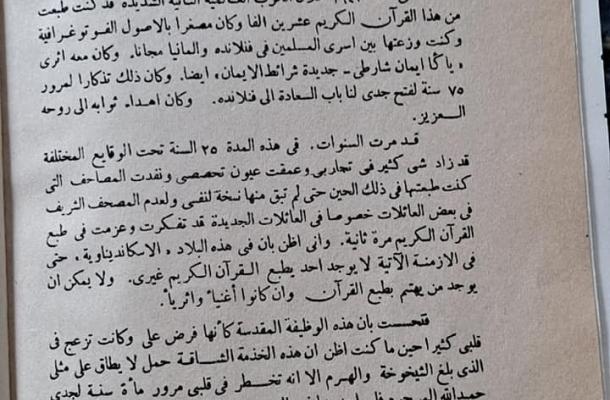 الشديدة فقد كنت طبعت
من هذا القرآن الكريم عشرين الفا وكان مصغرا بالاصول الفوتوغرافية
وكنت وزعتها بين اسرى المسلمين فى فنلانده والمانيا مجانا. وكان معه اثرى
« ياڭا ايمان شارطى - جديدة شرائط الايمان » ايضا. وكان ذلك تذكارا لمرور
٧٥ سنة لفتح جدى لنا باب السعادة الى فنلانده. وكان اهداء ثوابه الى روحه
العزيز.
قد مرت السنوات. فى هذه المدة ٢٥ السنة تحت الوقايع المختلفة
قد زاد شى كثير فى تجاربى وعمقت عيون تخصصى ونفدت المصاحف التى
كنت طبعتها فى ذلك الحين حتى لم تبق منها نسخة لنفسى ولعدم المصحف الشريف
فى بعض العائلات خصوصا فى العائلات الجديدة قد تفكرت وعزمت فى طبع
القرآن الكريم مرة ثانية. وانى اظن بان فى هذه البلاد « الاسكانديناوية » حتى
فى الازمنة الآتية لا يوجد احد يطبع القرآن الكريم غيرى. ولا يمكن ان
يوجد من يهتم بطبع القرآن وان كانوا أغنياً واثرياً.
فتحست بان هذه الوظيفة المقدسة كأنها فرض على وكانت تزعج فى
قلبى كثيرا حين ما كنت اظن ان هذه الخدمة الشاقة حمل لا يطاق على مثلى
الذى بلغ الشيخوخة والهرم الا انه تخطر فى قلبى مرور مأة سنة لجدى
حمد الله